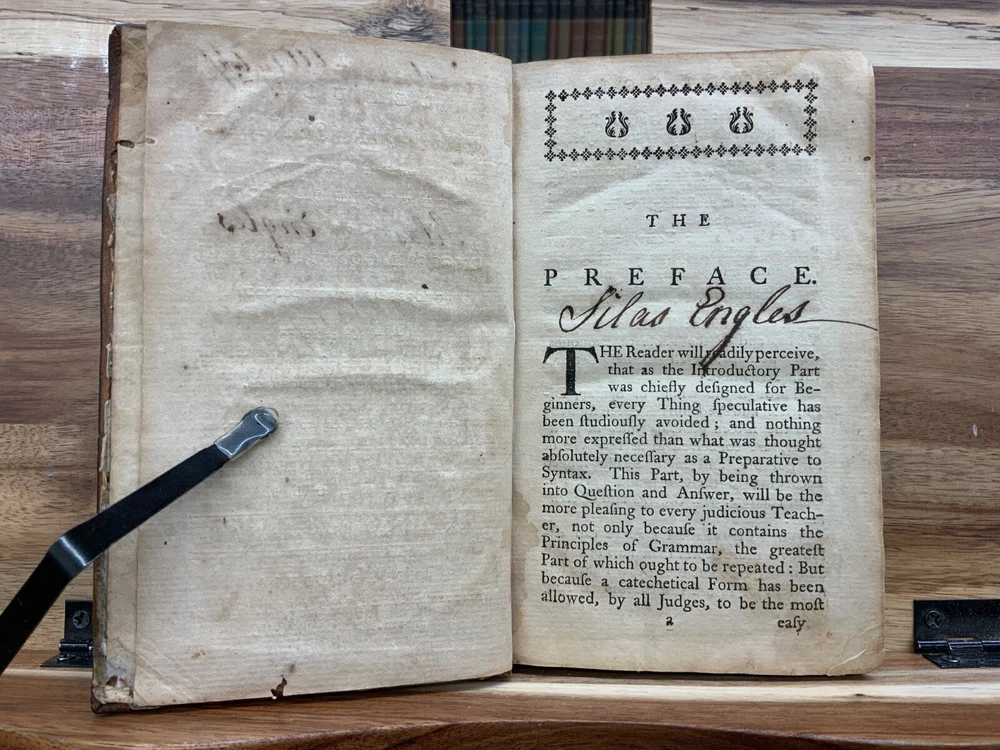 THE
PREFACE.
Silas Engles
THE Reader will readily perceive,
that as the Introductory Part
was chiefly deſigned for Be-
ginners, every Thing ſpeculative has
been ſtudiouſly avoided; and nothing
more expreſſed than what was thought
abſolutely neceſſary as a Preparative to
Syntax. This Part, by being thrown
into Queſtion and Anſwer, will be the
more pleaſing to every judicious Teach-
er, not only becauſe it contains the
Principles of Grammar, the greateſt
Part of which ought to be repeated: But
becauſe a catechetical Form has been
allowed, by all Judges, to be the moſt
a eaſy